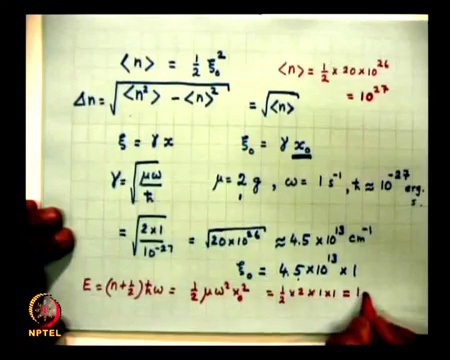 <n> = 1/2 ξ₀²
<n> = 1/2 × 20 × 10²⁶
= 10²⁷
Δn = √(<n²> − <n>²) = √<n>
ξ = γx   ξ₀ = γ x₀
γ = √(μω/ħ)   μ = 2 g , ω = 1 s⁻¹ , ħ ≈ 10⁻²⁷ erg. s.
= √(2×1/10⁻²⁷) = √(20×10²⁶) ≈ 4.5 × 10¹³ cm⁻¹
ξ₀ = 4.5 × 10¹³ × 1
E = (n+1/2)ħω = 1/2 μω²x₀² = 1/2 × 2 × 1 × 1 = 1
NPTEL